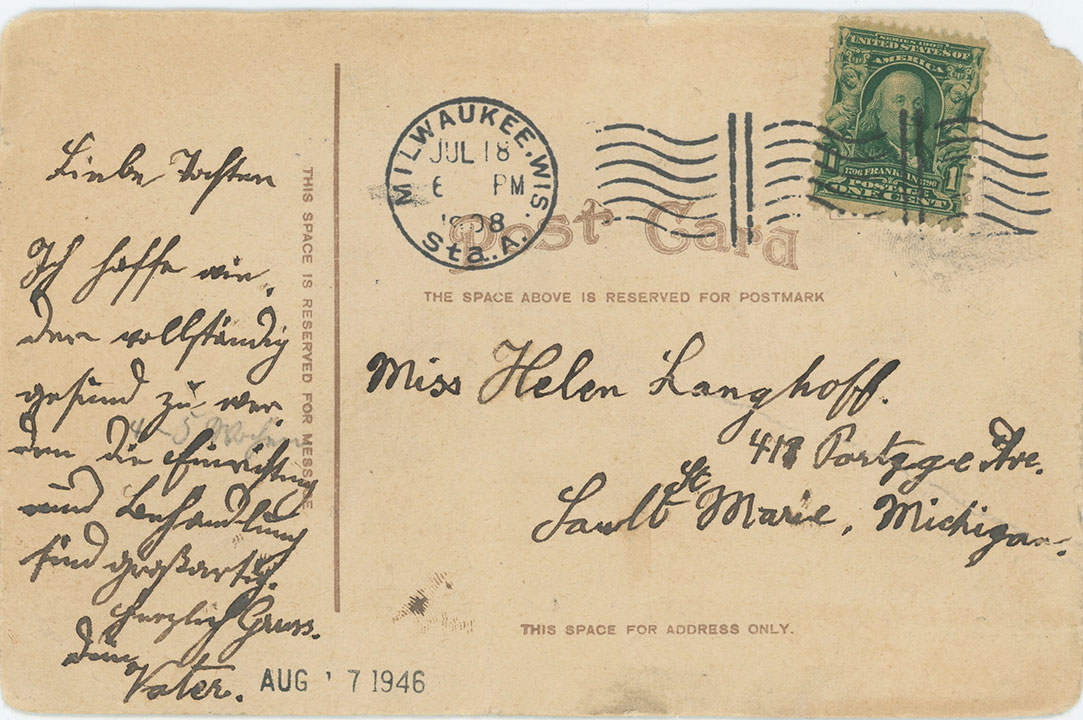 Liebe Tochter
Ich hoffe wie-
der vollständig
gesund zu wer-
4-5 Wochen
den die Einrichtung
und Behandlung
sind großartig.
Herzlich Gruss.
dein
Vater.
AUG 7 1946
THIS SPACE IS RESERVED FOR MESSAGE
MILWAUKEE, WIS.
JUL 18
6 PM
1908
Sta. A.
SERIES 1902
UNITED STATES OF
AMERICA
1 1
1706 FRANKLIN 1790
POSTAGE
ONE CENT
Post Card
THE SPACE ABOVE IS RESERVED FOR POSTMARK
Miss Helen Langhoff.
418 Portgge Ave.
Sault St Marie, Michigan.
THIS SPACE FOR ADDRESS ONLY.